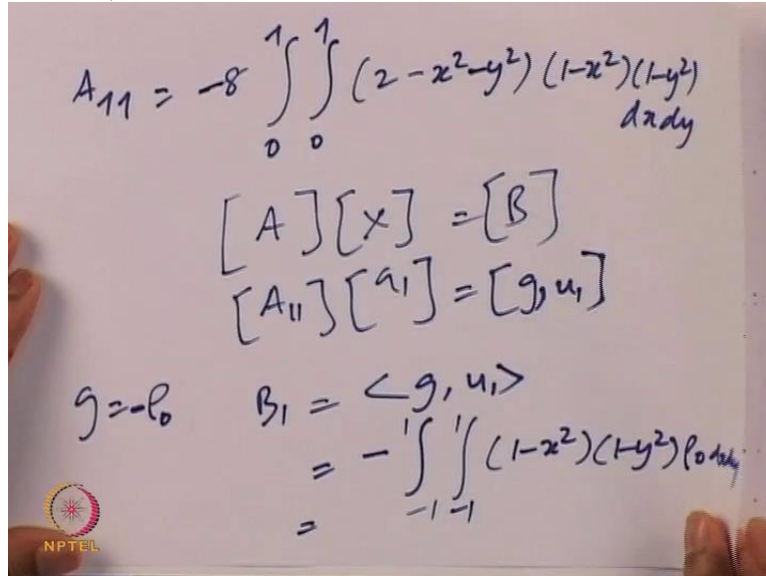 A₁₁ = -8 ∫₀¹ ∫₀¹ (2 - x² - y²) (1-x²)(1-y²) dxdy
[A][X] = [B]
[A₁₁][a₁] = [g, u₁]
g = -ρ₀ B₁ = <g, u₁>
= - ∫₋₁¹ ∫₋₁¹ (1-x²)(1-y²) ρ₀ dxdy
=
NPTEL